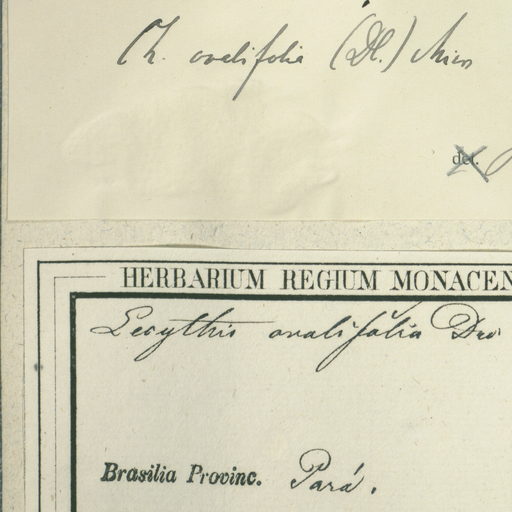 Ch. ovalifolia (DC.) Miers
det.
HERBARIUM REGIUM MONACEN
Lecythis ovalifolia
Brasilia Provinc. Pará.